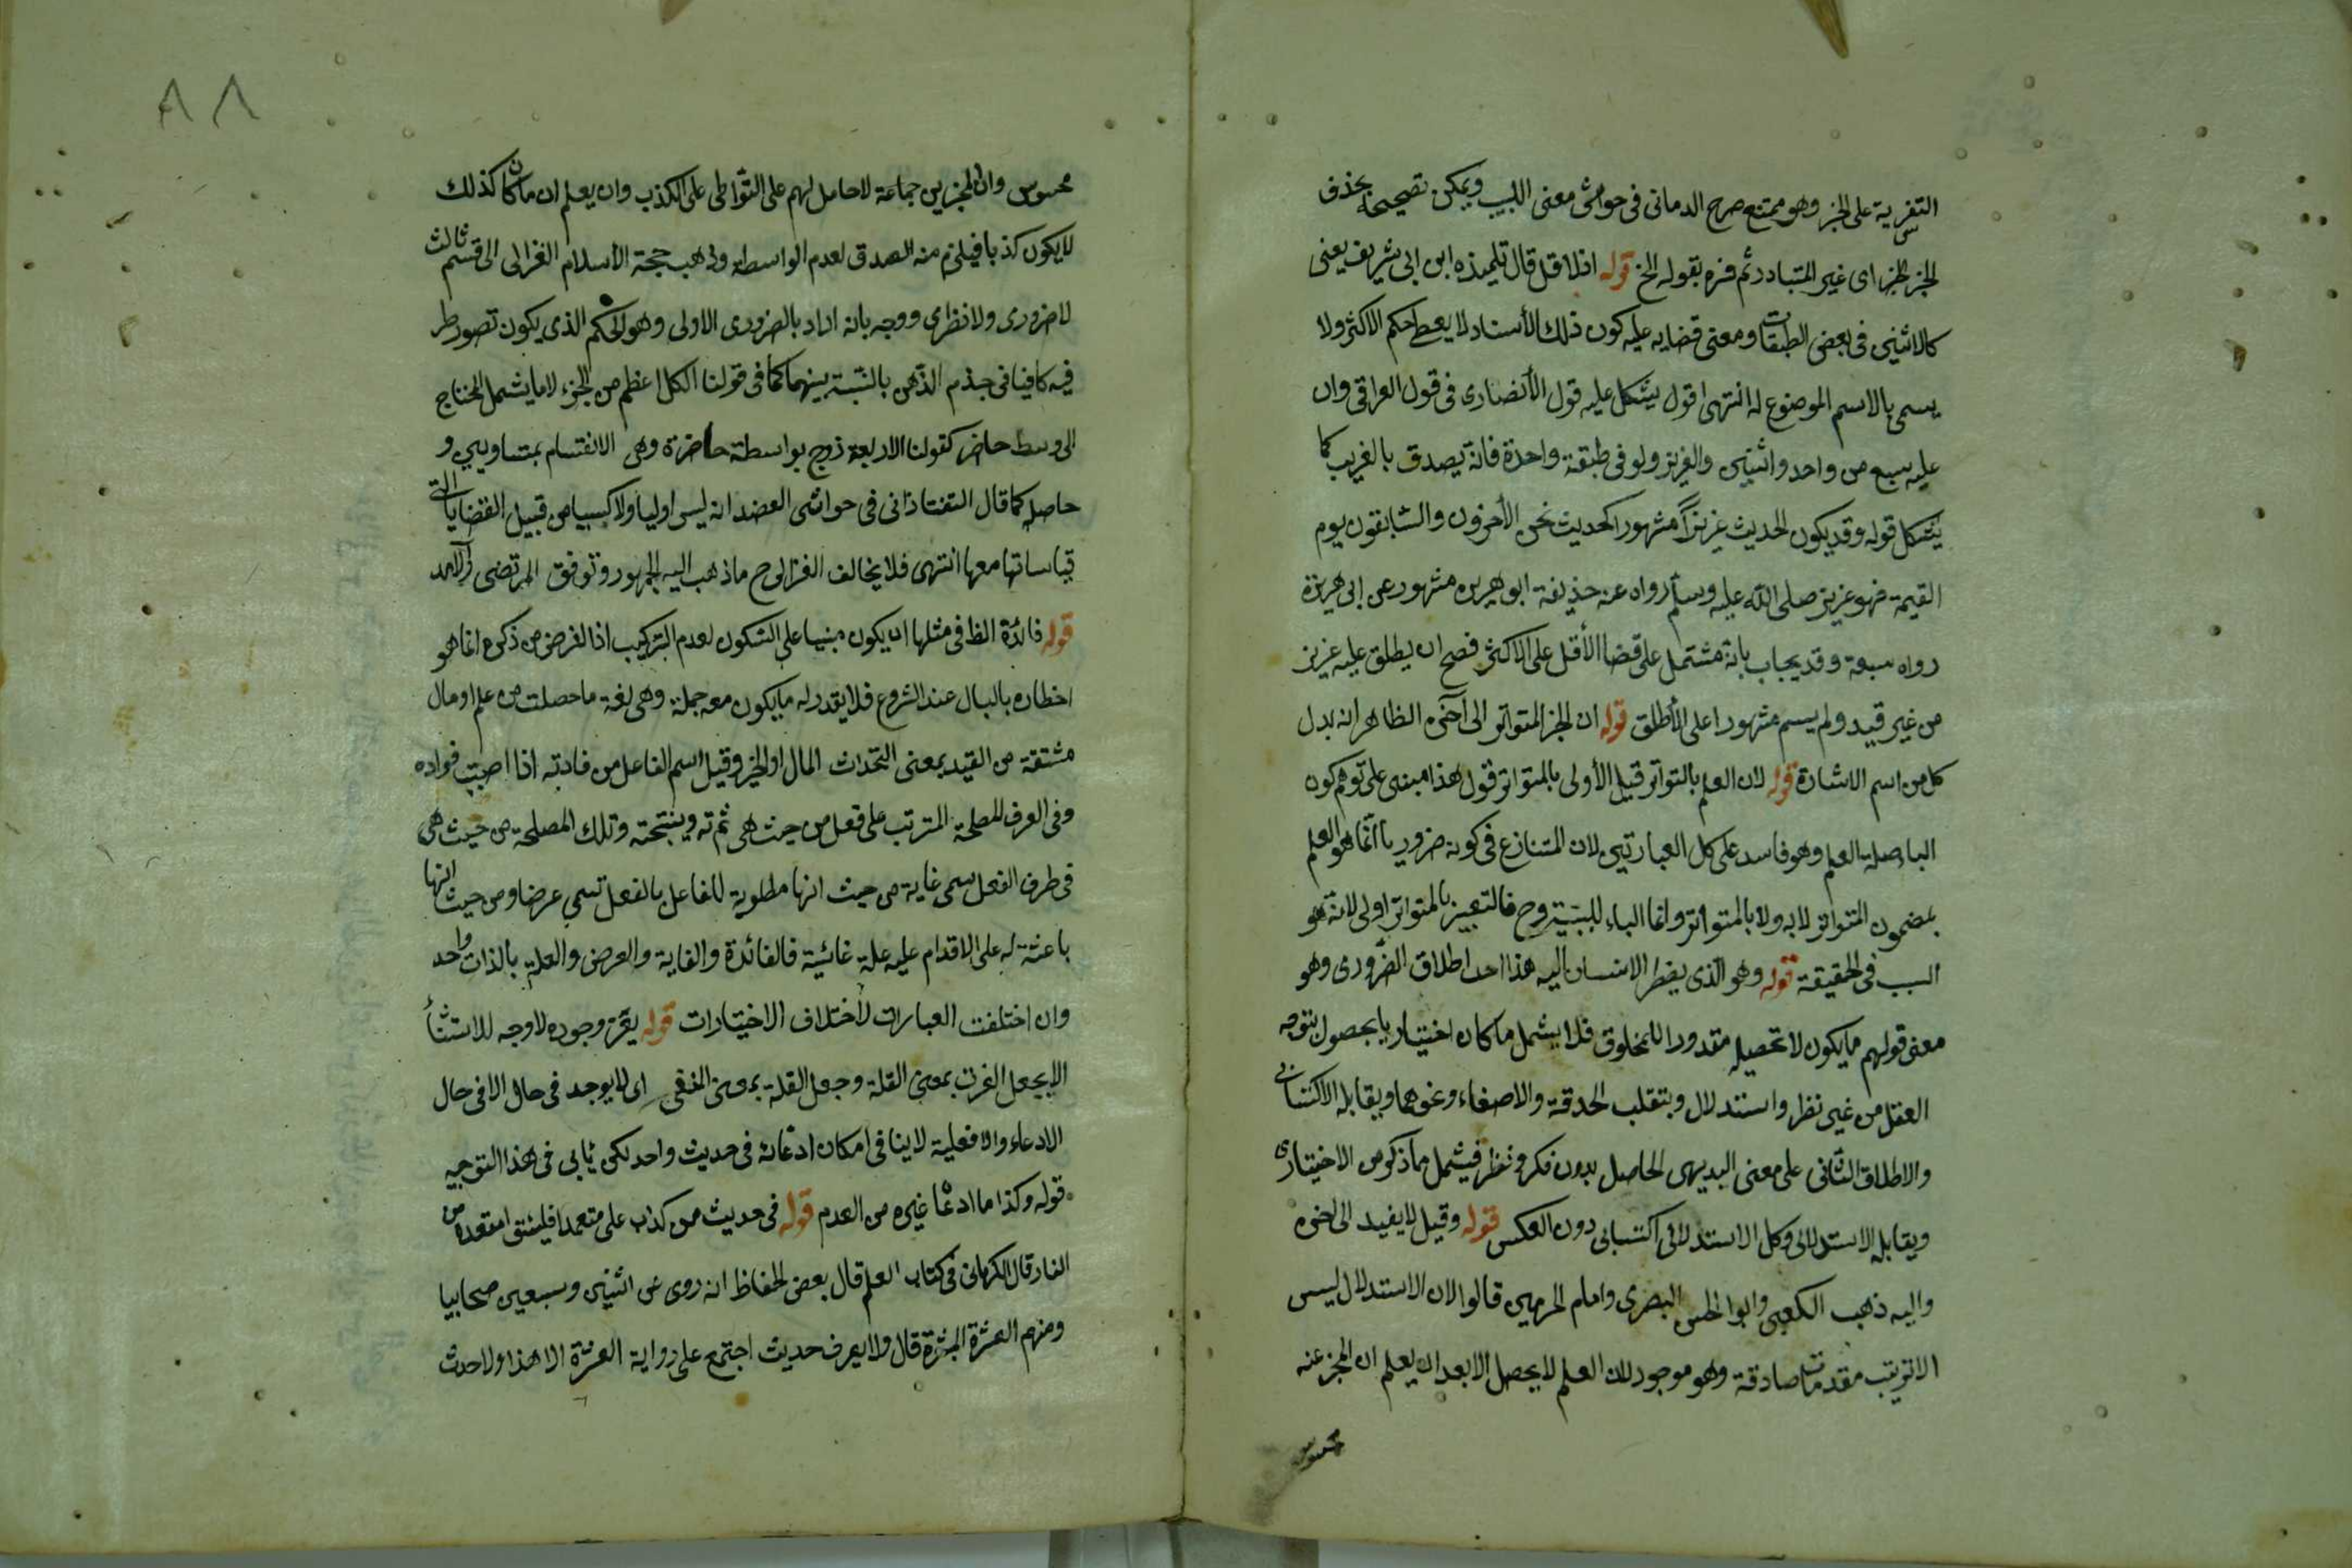 التفسيرية على الخبر وهو ممتنع صرح الدمانى فى حواشى معنى اللبيب ويمكن تصحيحها بحذف
الخبر اى غير المتبادر ثم فسره بقوله الخ قوله اذلا قل قال تلميذه ابن ابى شريف يعنى
كالاثنين فى بعض الطبقات ومعنى قضايه عليه كون ذلك الأسناد لا يعط حكم الاكثر ولا
يسمى بالاسم الموضوع له انتهى اقول يشكل عليه قول الأنصارى فى قول العراقى وان
عليه يسع من واحد واثنين والعزيز ولو فى طبقة واحدة فانه يصدق بالغريب كما
يشكل قوله وقد يكون الحديث عزيزاً مشهورا كحديث نحن الأخرون والسابقون يوم
القيمة فهو عزيز صلى الله عليه وسلم رواه عنه حذيفة ابو هريره مشهور عن ابى هريرة
رواه سبعة وقد يجاب بانه مشتمل على قضا الأقل على الاكثر فصح ان يطلق عليه عزيز
من غير قيد ولم يسم مشهورا على الأطلق قوله ان الخبر المتواتر الى آخره الظاهر انه بدل
كل من اسم الاشارة قوله لان العلم بالتواتر قيل الأولى بالمتواتر قول هذا مبنى على توهم كون
الباء صلة العلم وهو فاسد على كل العبارتين لان المتنازع فى كونه ضروريا انما هو العلم
بمضمون المتواتر لا به ولا بالمتواتر وانما الباء للسببية وح فالتعبير بالمتواتر اولى لانه هو
السبب فى الحقيقة قوله وهو الذى يضطر الانسان اليه هذا احد اطلاق الضرورى وهو
معنى قولهم ما يكون لا تحصيله مقدورا للمخلوق فلا يشمل ما كان اختياريا بحصول بتوجه
العقل من غير نظر واستدلال وبتقلب الحدقة والاصغاء ونحوهما ويقابله الاكتسابى
والاطلاق الثانى على معنى البديهى الحاصل بدون فكر ونظر فيشمل ما ذكر من الاختيارى
ويقابله الاستدلالى وكل الاستدلالى اكتسابى دون العكس قوله وقيل لا يفيد الى اخره
واليه ذهب الكعبى وابو الحسن البصرى وامام الحرمين قالوا لان الاستدلال ليس
الا ترتيب مقدمات صادقة وهو موجود لان العلم لا يحصل الا بعد ان يعلم ان المخبر عنه
محسوس
٨٨
محسوس وان المخبرين جماعة لا حامل لهم على التواطى على الكذب وان يعلم ان ما كان كذلك
لا يكون كذبا فيلزم منه الصدق لعدم الواسطه وذهب حجة الأسلام الغزالى الى قسم ثالث
لا ضرورى ولا نظرى ووجه بانه اراد بالضرورى الاولى وهو الحكم الذى يكون تصور طر
فيه كافيا فى جزم الذهن بالنسبة بينهما كما فى قولنا الكل اعظم من الجزء لا ما يشمل المحتاج
الى وسط حاضر كقولنا الاربعة زوج بواسطة حاضرة وهى الانقسام بمتساويين و
حاصله كما قال التفتازانى فى حواشى العضد انه ليس اوليا ولا كسبيا من قبيل القضايا التى
قياساتها معها انتهى فلا يخالف الغزالى ح ما ذهب اليه الجمهور وتوفق المرتضى والآمد
قوله فائدة الظ فى مثلها ان يكون مبنيا على السكون لعدم التركيب اذا لغرض من ذكره انما هو
اخطاره بالبال عند الشروع فلا يقدر له ما يكون معه جملة وهى لغة ما حصلت من علم او مال
مشتقة من الفيد بمعنى التحداث المال او الخير وقيل اسم الفاعل من فادته اذا اصبت فواده
وفى العرف للمصلحة المترتب على فعل من حيث هى ثمرته وينتحته وتلك المصلحة من حيث هى
فى طرف الفعل سمى غاية من حيث انها مطلوبة للفاعل بالفعل تسمى عرضا ومن حيث انها
باعثة له على الاقدام عليه علة غائية فالفائدة والغاية والعرض والعلة بالذات واحد
وان اختلفت العبارات لأختلاف الاختيارات قوله يعز وجوده لا وجه للاستثنأ
الا بجعل العزة بمعنى القلة وجعل القلة بمعنى النفى اى لا يوجد فى حال الا فى حال
الادعاء والا فعلية لا ينافى امكان ادعائه فى حديث واحد لكن يأبى فى هذا التوجيه
قوله وكذا ما ادعا غيره من العدم قوله فى حديث من كذب على متعمدا فليتبوا مقعده من
النار قال الكرمانى فى كتاب العلم قال بعض الحفاظ انه روى عن اثنين وسبعين صحابيا
ومنهم العشرة المبشرة قال ولا يعرف حديث اجتمع على رواية العشرة الا هذا ولا حديث